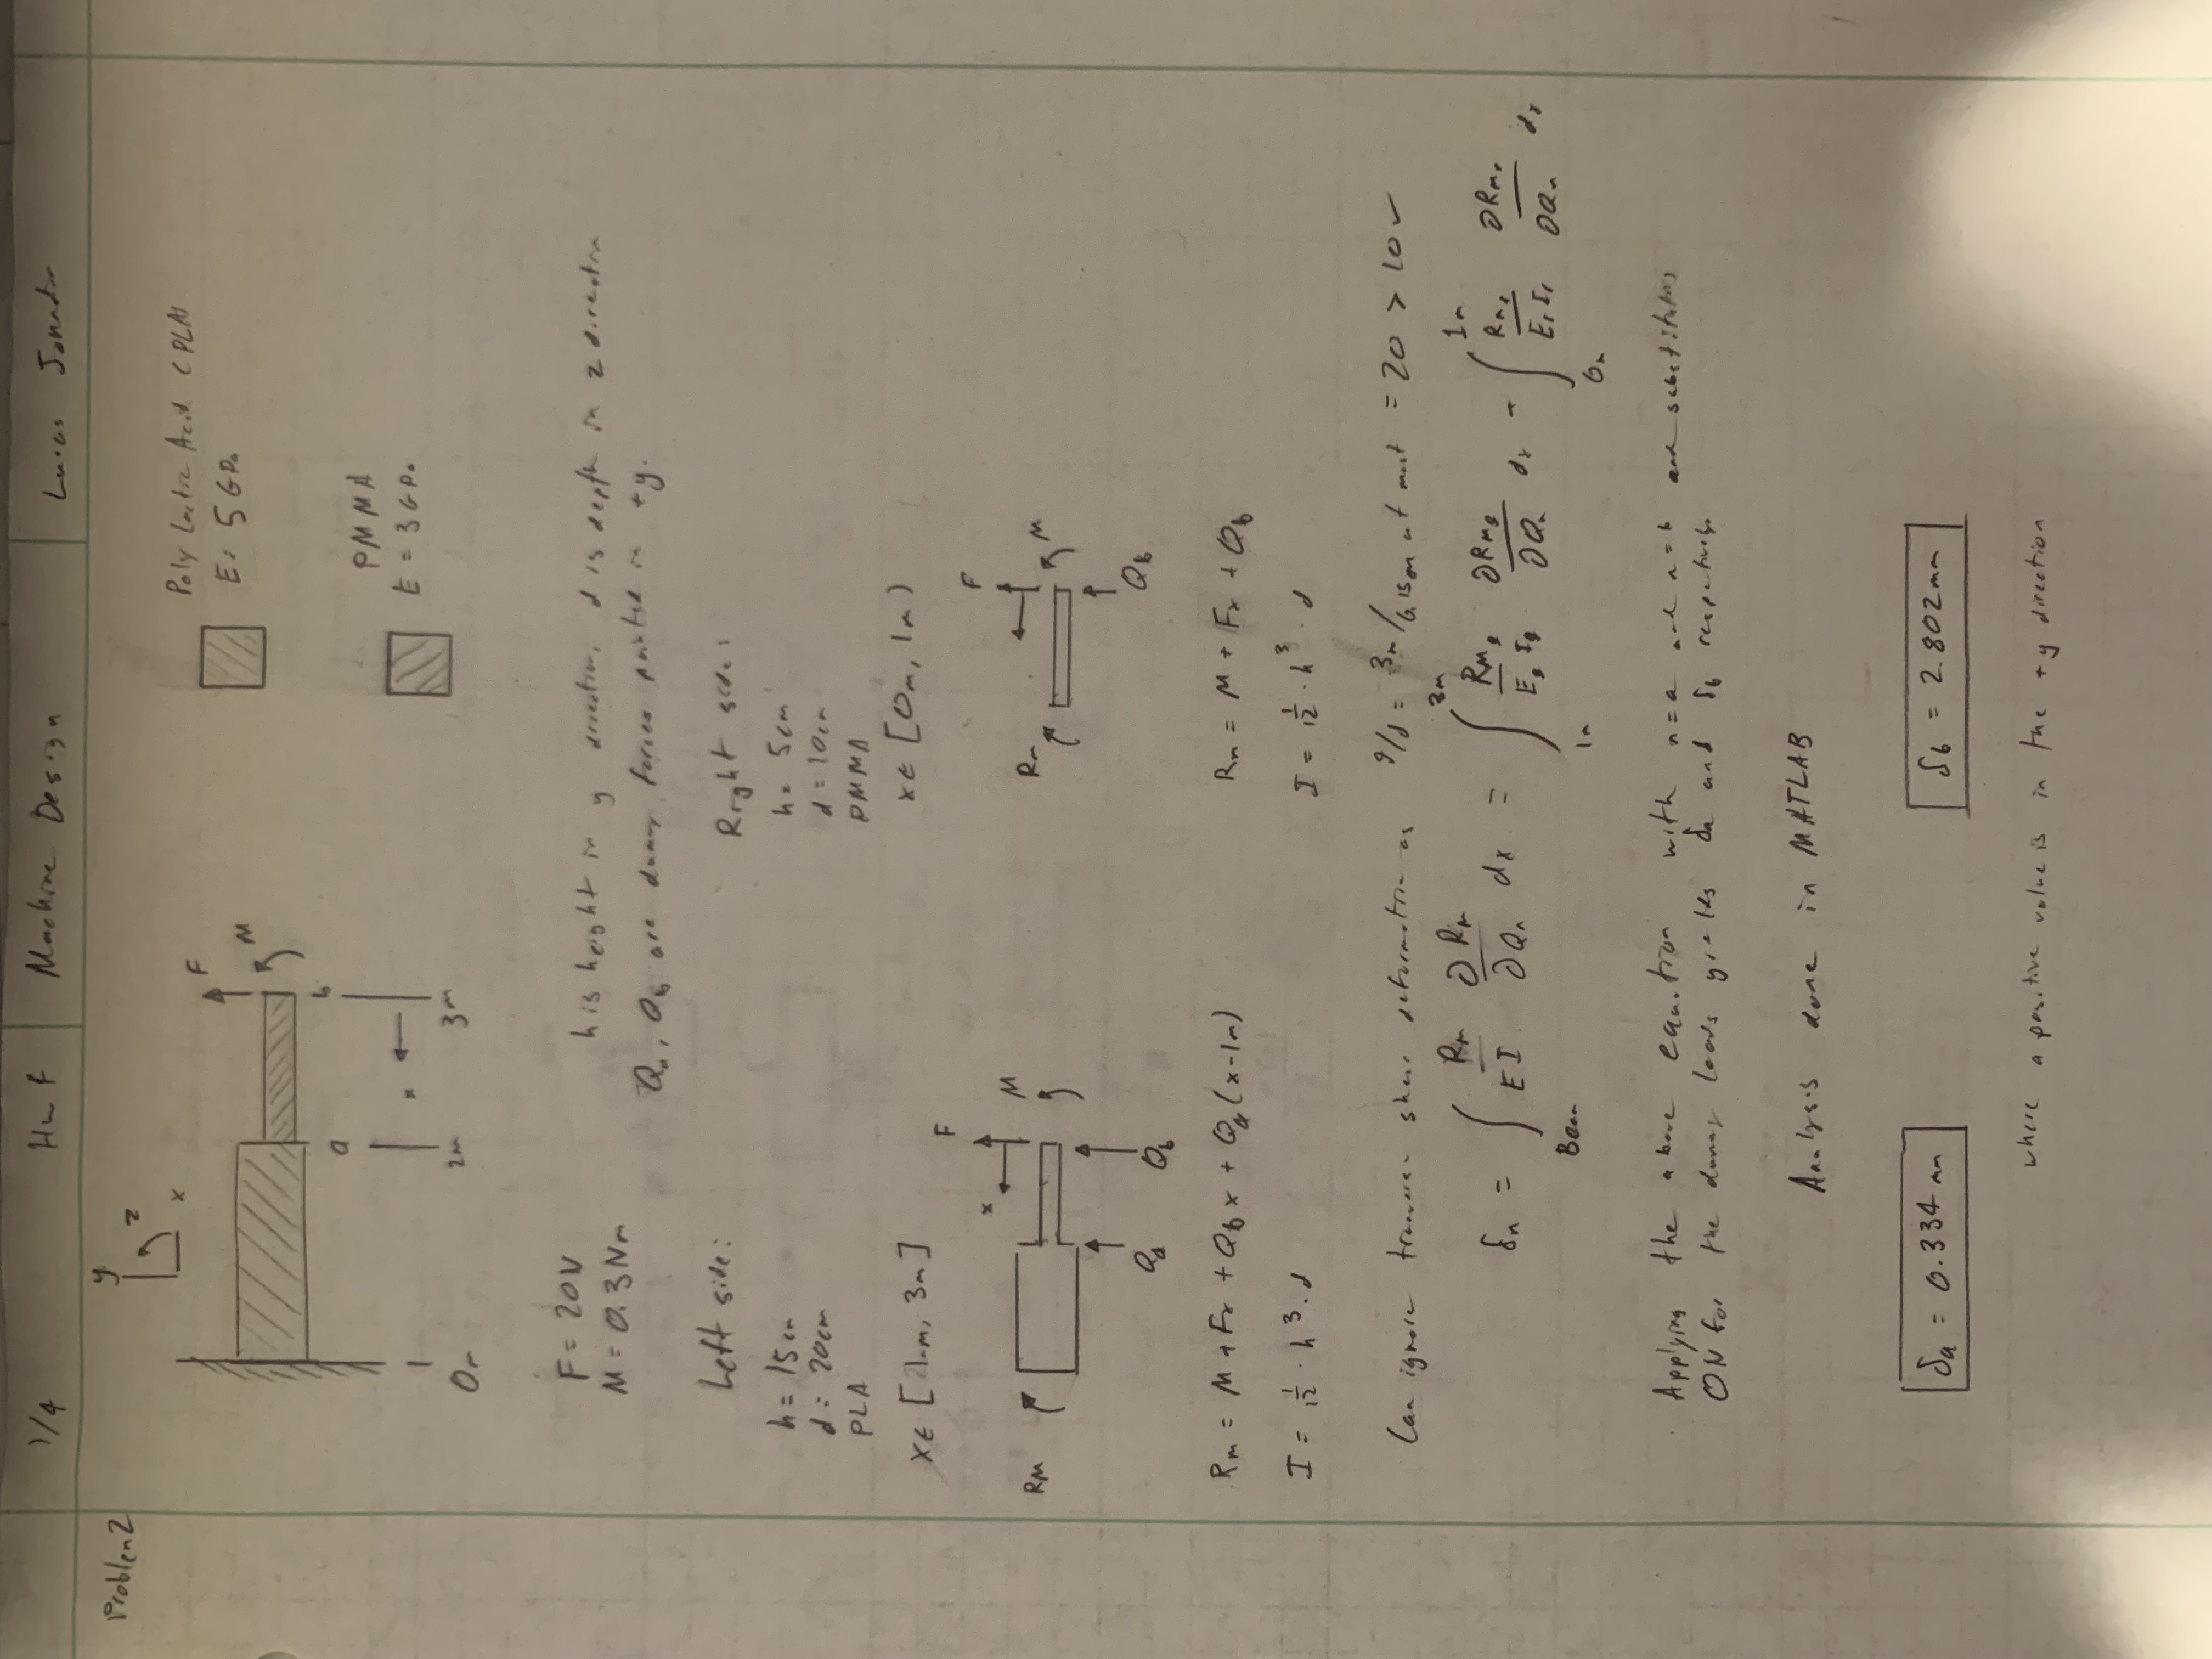 1/4 Hw f Machine Design Lucas
Problem 2
y
z
x
F
M
a
b
x
0m 2m 3m
Poly Lactic Acid (PLA)
E = 5 GPa
PMMA
E = 3 GPa
F = 20N
M = 0.3 Nm
h is height in y direction, d is depth in z direction
Qa, Qb are dummy forces pointed in +y.
Left side: Right side:
h = 15cm h = 5cm
d = 20cm d = 10cm
PLA PMMA
x ∈ [1m, 3m] x ∈ [0m, 1m)
F F
x M
RM Rm M
Qa Qb Qb
Rm = M + Fx + Qb x + Qa (x-1m) Rm = M + Fx + Qb
I = 1/12 · h³ · d I = 1/12 · h³ · d
Can ignore transverse shear deformation as l/d = 3m/0.15m at most = 20 > 10 ✓
δn = ∫Beam Rm/EI ∂Rm/∂Qn dx = ∫1m 3m RMl/El Il ∂RMl/∂Qn dx + ∫0m 1m Rmr/Er Ir ∂Rmr/∂Qn dx
Applying the above equation with n=a and n=b and substituting
0N for the dummy loads yields δa and δb respectively
Analysis done in MATLAB
δa = 0.334 mm δb = 2.802 mm
where a positive value is in the +y direction